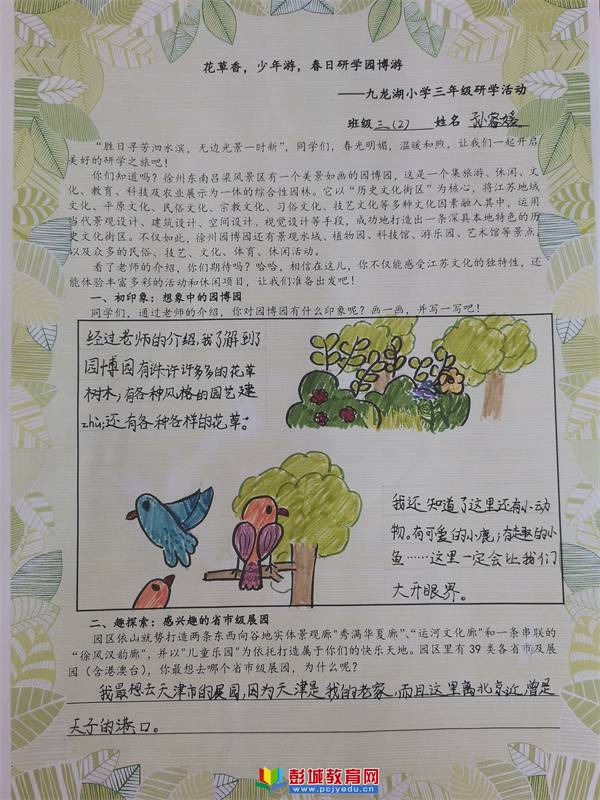 花草香，少年游，春日研学园博游
——九龙湖小学三年级研学活动
班级 三（2） 姓名 孙睿媛
“胜日寻芳泗水滨，无边光景一时新”，同学们，春光明媚，温暖和煦，让我们一起开启
美好的研学之旅吧！
你们知道吗？徐州东南吕梁风景区有一个美景如画的园博园，这是一个集旅游、休闲、文
化、教育、科技及农业展示为一体的综合性园林。它以“历史文化街区”为核心，将江苏地域
文化、平原文化、民俗文化、宗教文化、习俗文化、技艺文化等多种文化因素融入其中，运用
当代景观设计、建筑设计、空间设计、视觉设计等手段，成功地打造出一条深具本地特色的历
史文化街区。不仅如此，徐州园博园还有景观水域、植物园、科技馆、游乐园、艺术馆等景点，
以及众多的民俗、技艺、文化、体育、休闲活动。
看了老师的介绍，你们期待吗？哈哈，相信在这儿，你不仅能感受江苏文化的独特性，还
能体验丰富多彩的活动和休闲项目，让我们准备出发吧！
一、初印象：想象中的园博园
同学们，通过老师的介绍，你对园博园有什么印象呢？画一画，并写一写吧！
经过老师的介绍，我了解到了
园博园有许许许多多的花草
树木；有各种风格的园艺建
zhù；还有各种各样的花草。
我还知道了这里还有小动
物。有可爱的小鹿；有有趣的小
鱼……这里一定会让我们
大开眼界。
二、趣探索：感兴趣的省市级展园
园区依山就势打造两条东西向各地实体景观廊“秀满华夏廊”、“运河文化廊”和一条串联的
“徐风汉韵廊”，并以“儿童乐园”为依托打造属于你们的快乐天地。园区里有 39 类各省市及展
园（含港澳台），你最想去哪个省市级展园，为什么呢？
我最想去天津市的展园，因为天津是我的老家，而且这里离北京近，曾是
天子的港口。
彭城教育网
www.pcjyedu.cn